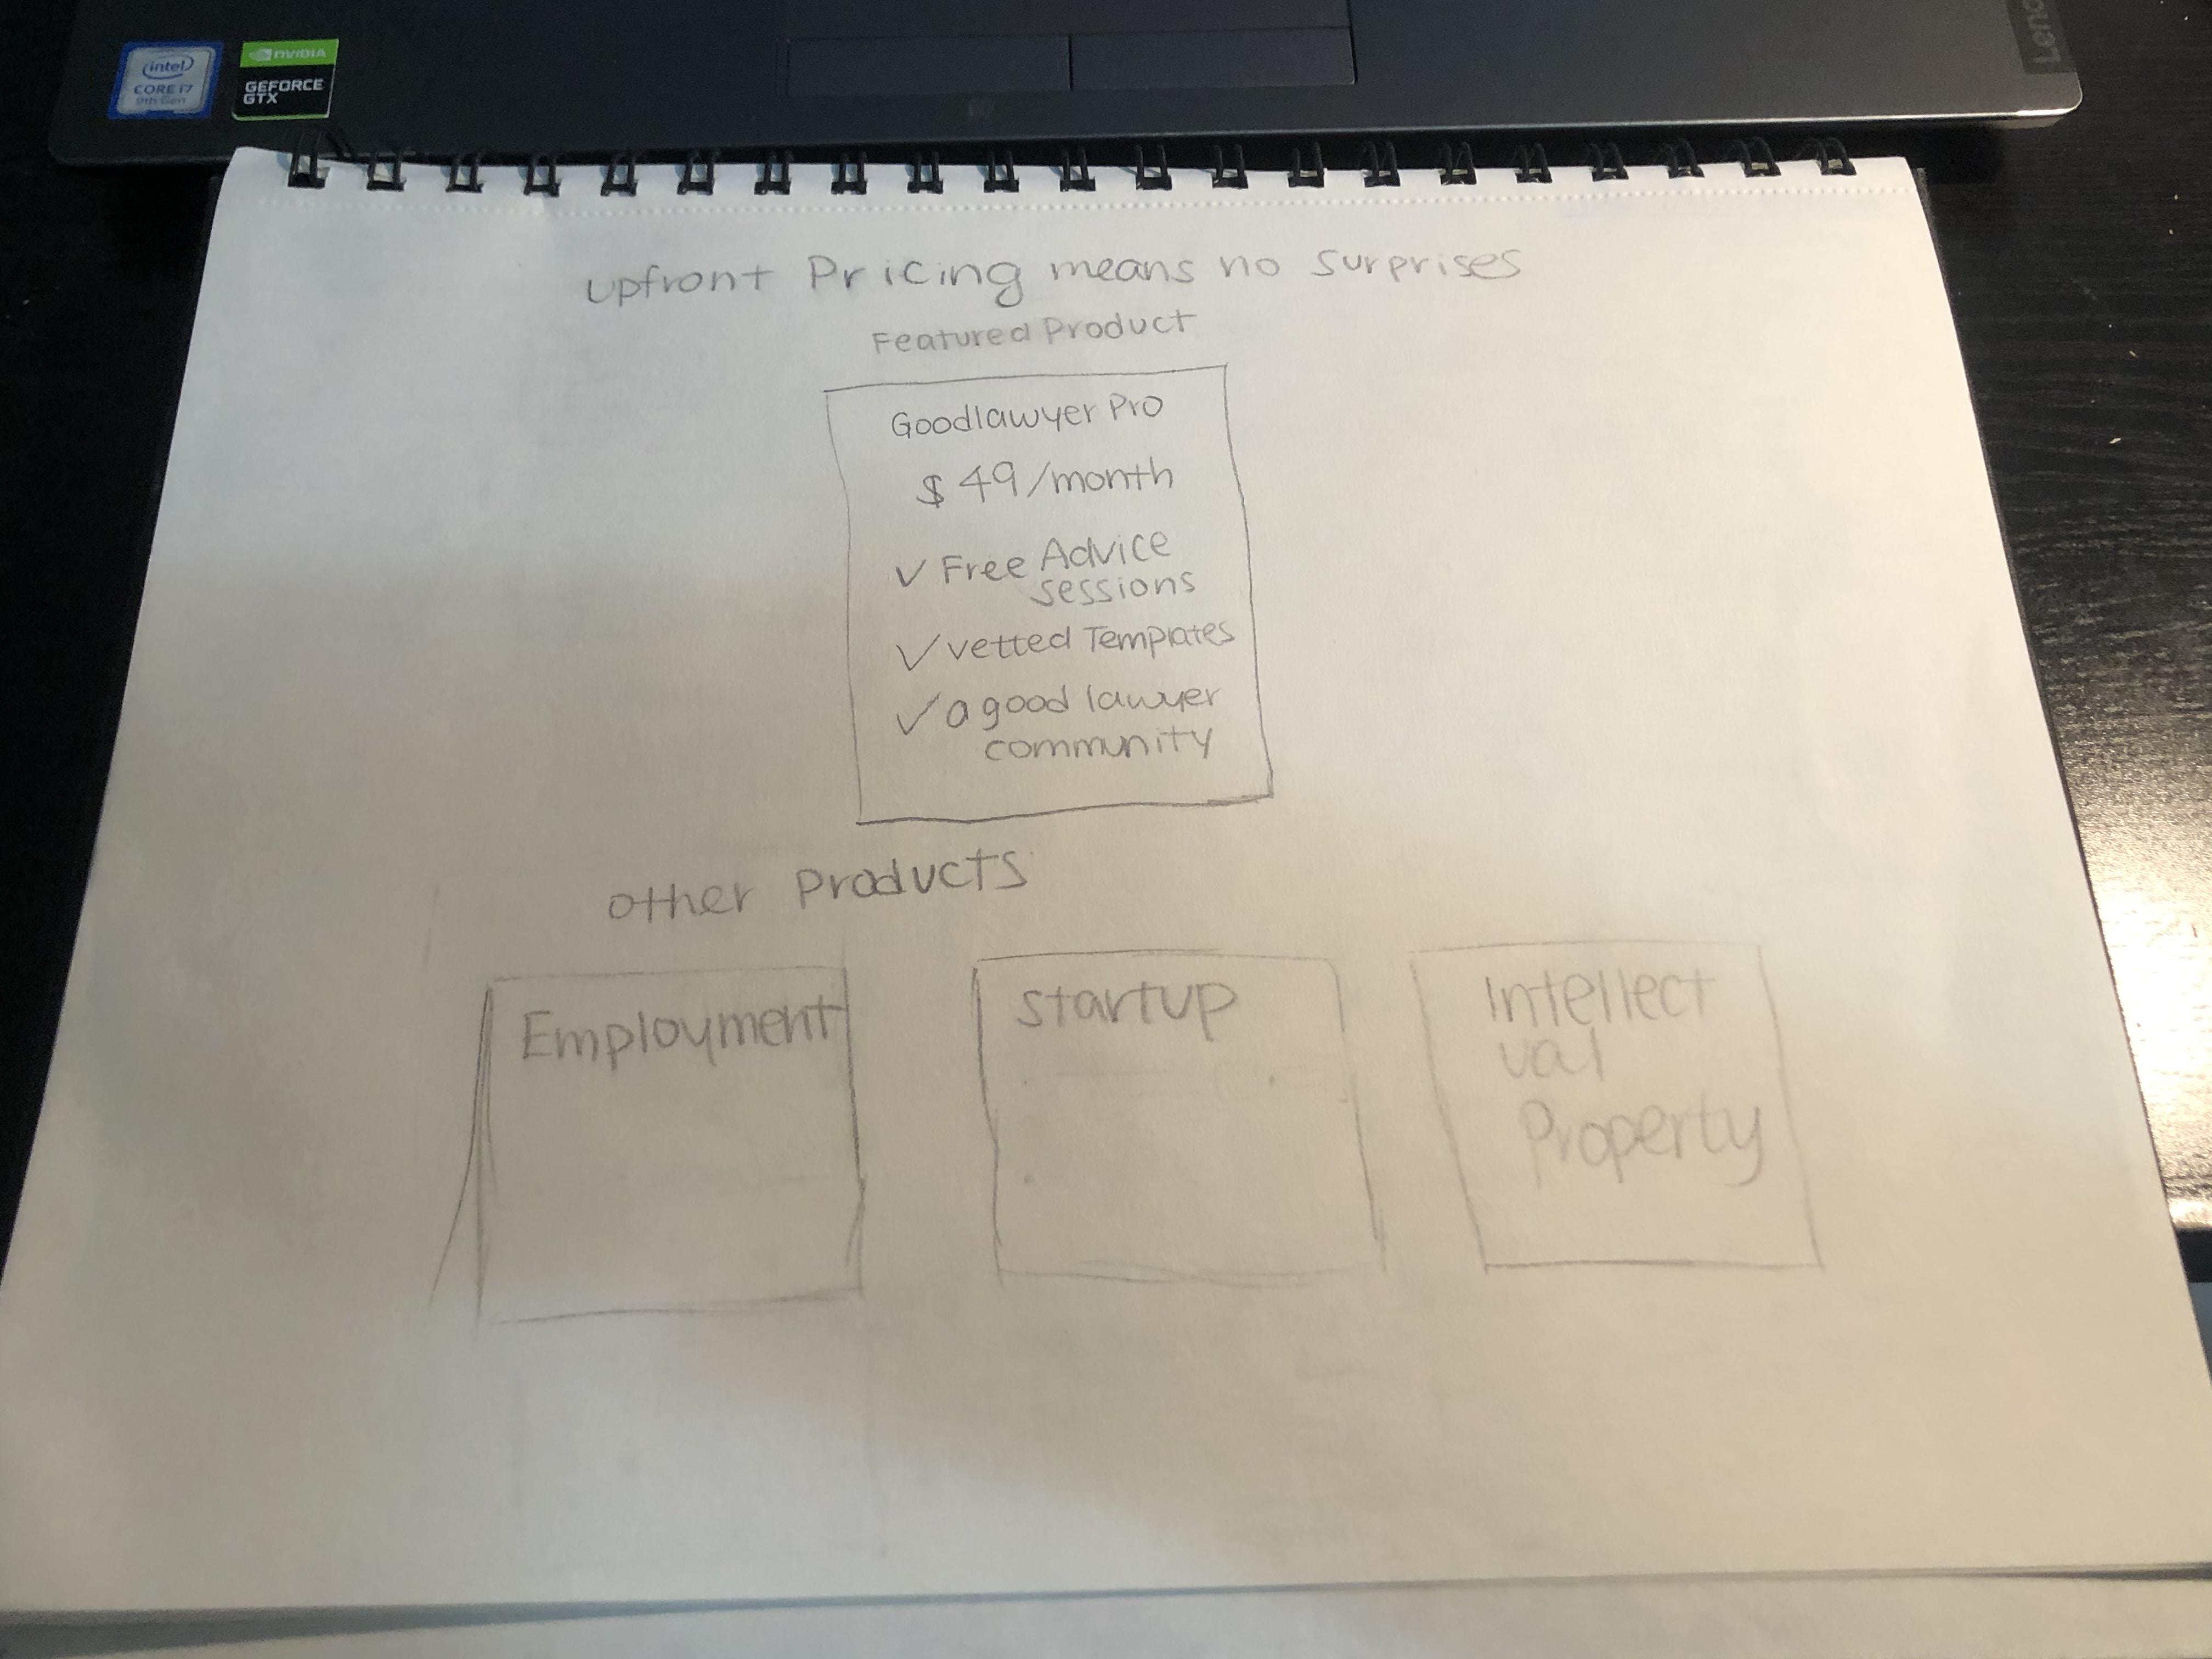 intel
CORE i7
9th Gen
NVIDIA
GEFORCE
GTX
Leno
upfront Pricing means no surprises
Featured Product
Goodlawyer Pro
$49/month
✓ Free Advice
sessions
✓ vetted Templates
✓ a good lawyer
community
other Products
Employment
startup
Intellect
ual
Property